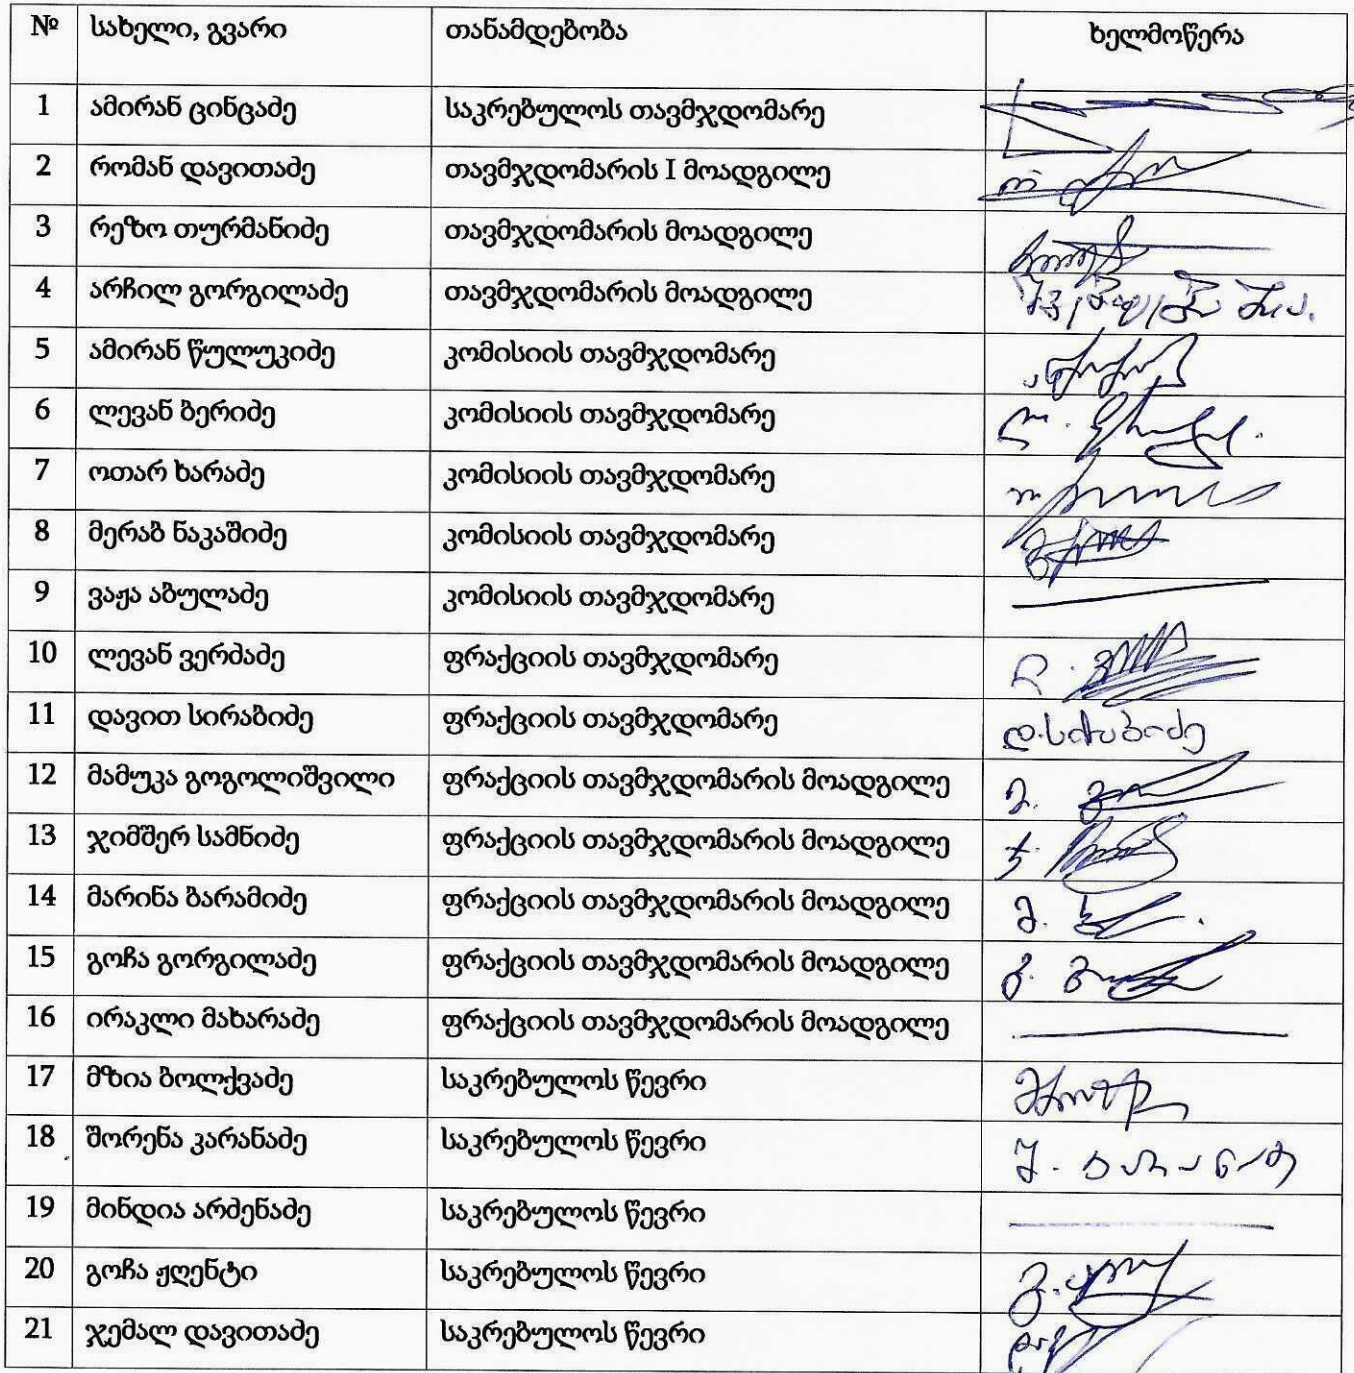 № სახელი, გვარი თანამდებობა ხელმოწერა
1 ამირან ცინცაძე საკრებულოს თავმჯდომარე
2 რომან დავითაძე თავმჯდომარის I მოადგილე
3 რეზო თურმანიძე თავმჯდომარის მოადგილე
4 არჩილ გორგილაძე თავმჯდომარის მოადგილე
5 ამირან წულუკიძე კომისიის თავმჯდომარე
6 ლევან ბერიძე კომისიის თავმჯდომარე
7 ოთარ ხარაძე კომისიის თავმჯდომარე
8 მერაბ ნაკაშიძე კომისიის თავმჯდომარე
9 ვაჟა აბულაძე კომისიის თავმჯდომარე
10 ლევან ვერძაძე ფრაქციის თავმჯდომარე
11 დავით სირაბიძე ფრაქციის თავმჯდომარე დ.სირაბიძე
12 მამუკა გოგოლიშვილი ფრაქციის თავმჯდომარის მოადგილე
13 ჯიმშერ სამნიძე ფრაქციის თავმჯდომარის მოადგილე
14 მარინა ბარამიძე ფრაქციის თავმჯდომარის მოადგილე
15 გოჩა გორგილაძე ფრაქციის თავმჯდომარის მოადგილე
16 ირაკლი მახარაძე ფრაქციის თავმჯდომარის მოადგილე
17 მზია ბოლქვაძე საკრებულოს წევრი
18 შორენა კარანაძე საკრებულოს წევრი
19 მინდია არძენაძე საკრებულოს წევრი
20 გოჩა ჟღენტი საკრებულოს წევრი
21 ჯემალ დავითაძე საკრებულოს წევრი